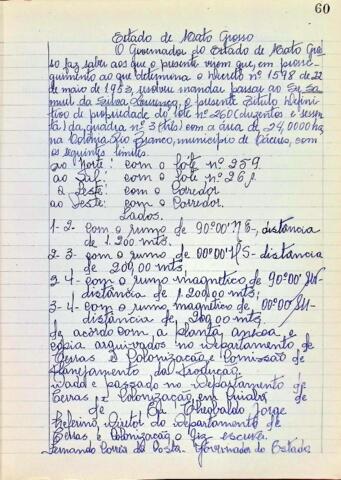 60
Estado de Mato Grosso
O Governador do Estado de Mato Gros-
so faz saber aos que o presente virem que, em prosse-
guimento ao que determina o Decreto nº 1598 de 22
de maio de 1953, resolveu mandar passar ao Sr. Sa-
muel da Silva Lourenço, o presente Titulo Defini-
tivo de propriedade do lote nº 260 (duzentos e sessen-
ta) da quadra nº 3 (três) com a área de 24,0000 ha
na Colonia Rio Branco, municipio de Cáceres, com
os seguintes limites.
ao Norte: com o lote nº 259.
ao Sul: com o lote nº 261.
a Leste: com o Corredor
ao Oeste: com o Corredor.
Lados.
1-2- com o rumo de 90º00' distancia
de 1.200 mts.
2-3- com o rumo de 00º00' distancia
de 200,00 mts.
com o rumo magnético de 90º00'
distancia de 1.200,00 mts;
com o rumo magnético de 00º00'
distancia de 200,00 mts.
de acôrdo com a planta anexa e
copia arquivados no Departamento de
Terras e Colonização e Comissão de
Planejamento da Produção.
Dado e passado no Departamento de
Terras e Colonização, em Cuiabá de
de Eu Theobaldo Jorge
Diretor do Departamento de
Terras e Colonização o fiz escrever.
Fernando Corrêa da Costa. Governador do Estado